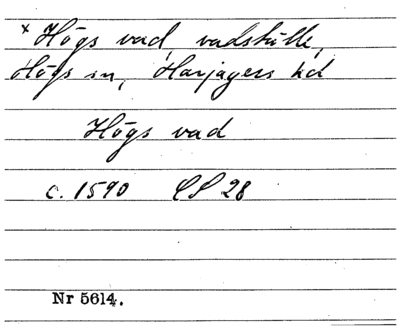 x Högs vad, vadställe,
Högs sn, Harjagers hd
Högs vad
c. 1590 CS 28
Nr 5614.